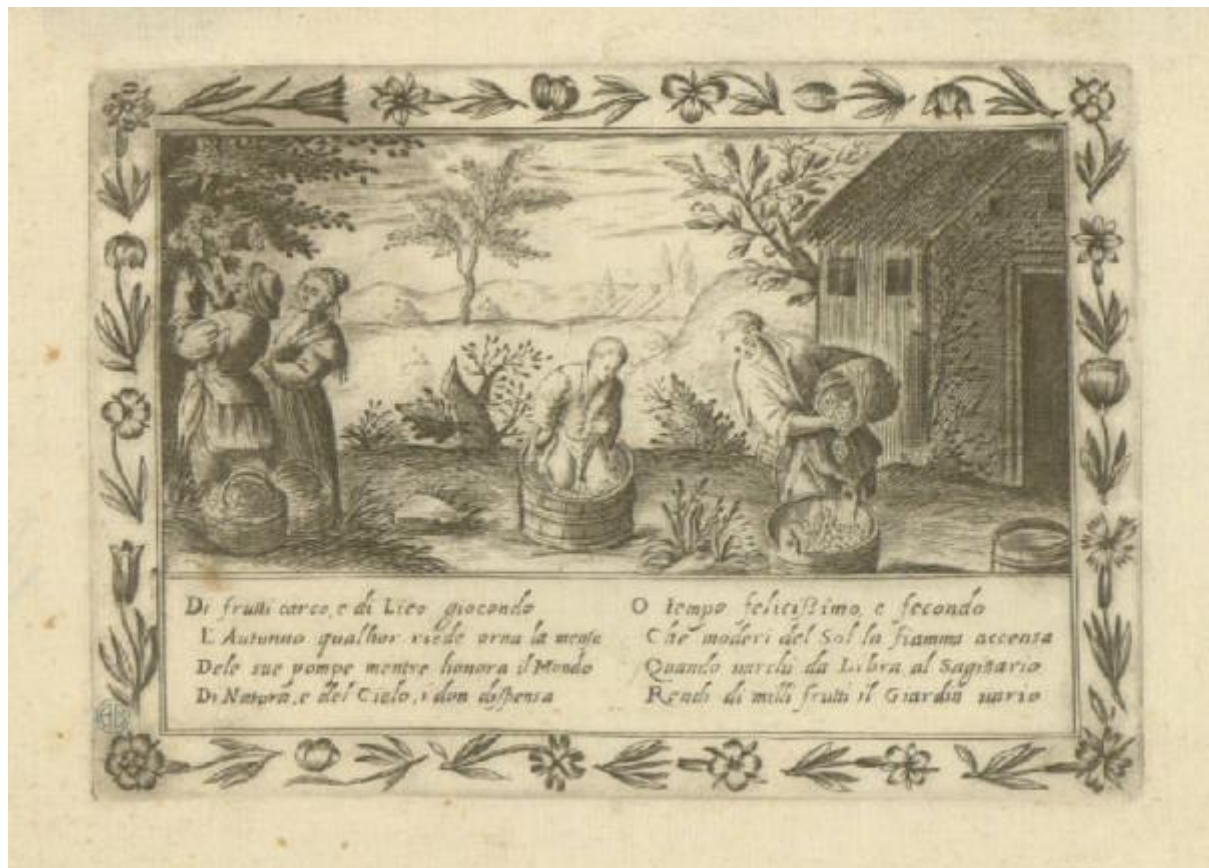 Di frutti carco, e di Lieo giocondo
L'Autunno qualhor riede orna la mensa
Dele sue pompe mentre honora il Mondo
Di Natura, e del Cielo, i don dispensa
O tempo felicißimo, e fecondo
Che moderi del Sol la fiamma accensa
Quando varchi da Libra al Sagittario
Rendi di mille frutti il Giardin vario